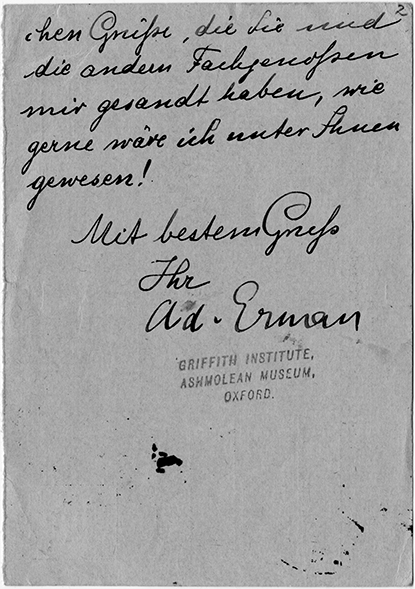 chen Grüße, die Sie und 2
die andern Fachgenoßen
mir gesandt haben, wie
gerne wäre ich unter Ihnen
gewesen!
Mit bestem Gruß
Ihr
Ad. Erman
GRIFFITH INSTITUTE,
ASHMOLEAN MUSEUM,
OXFORD.